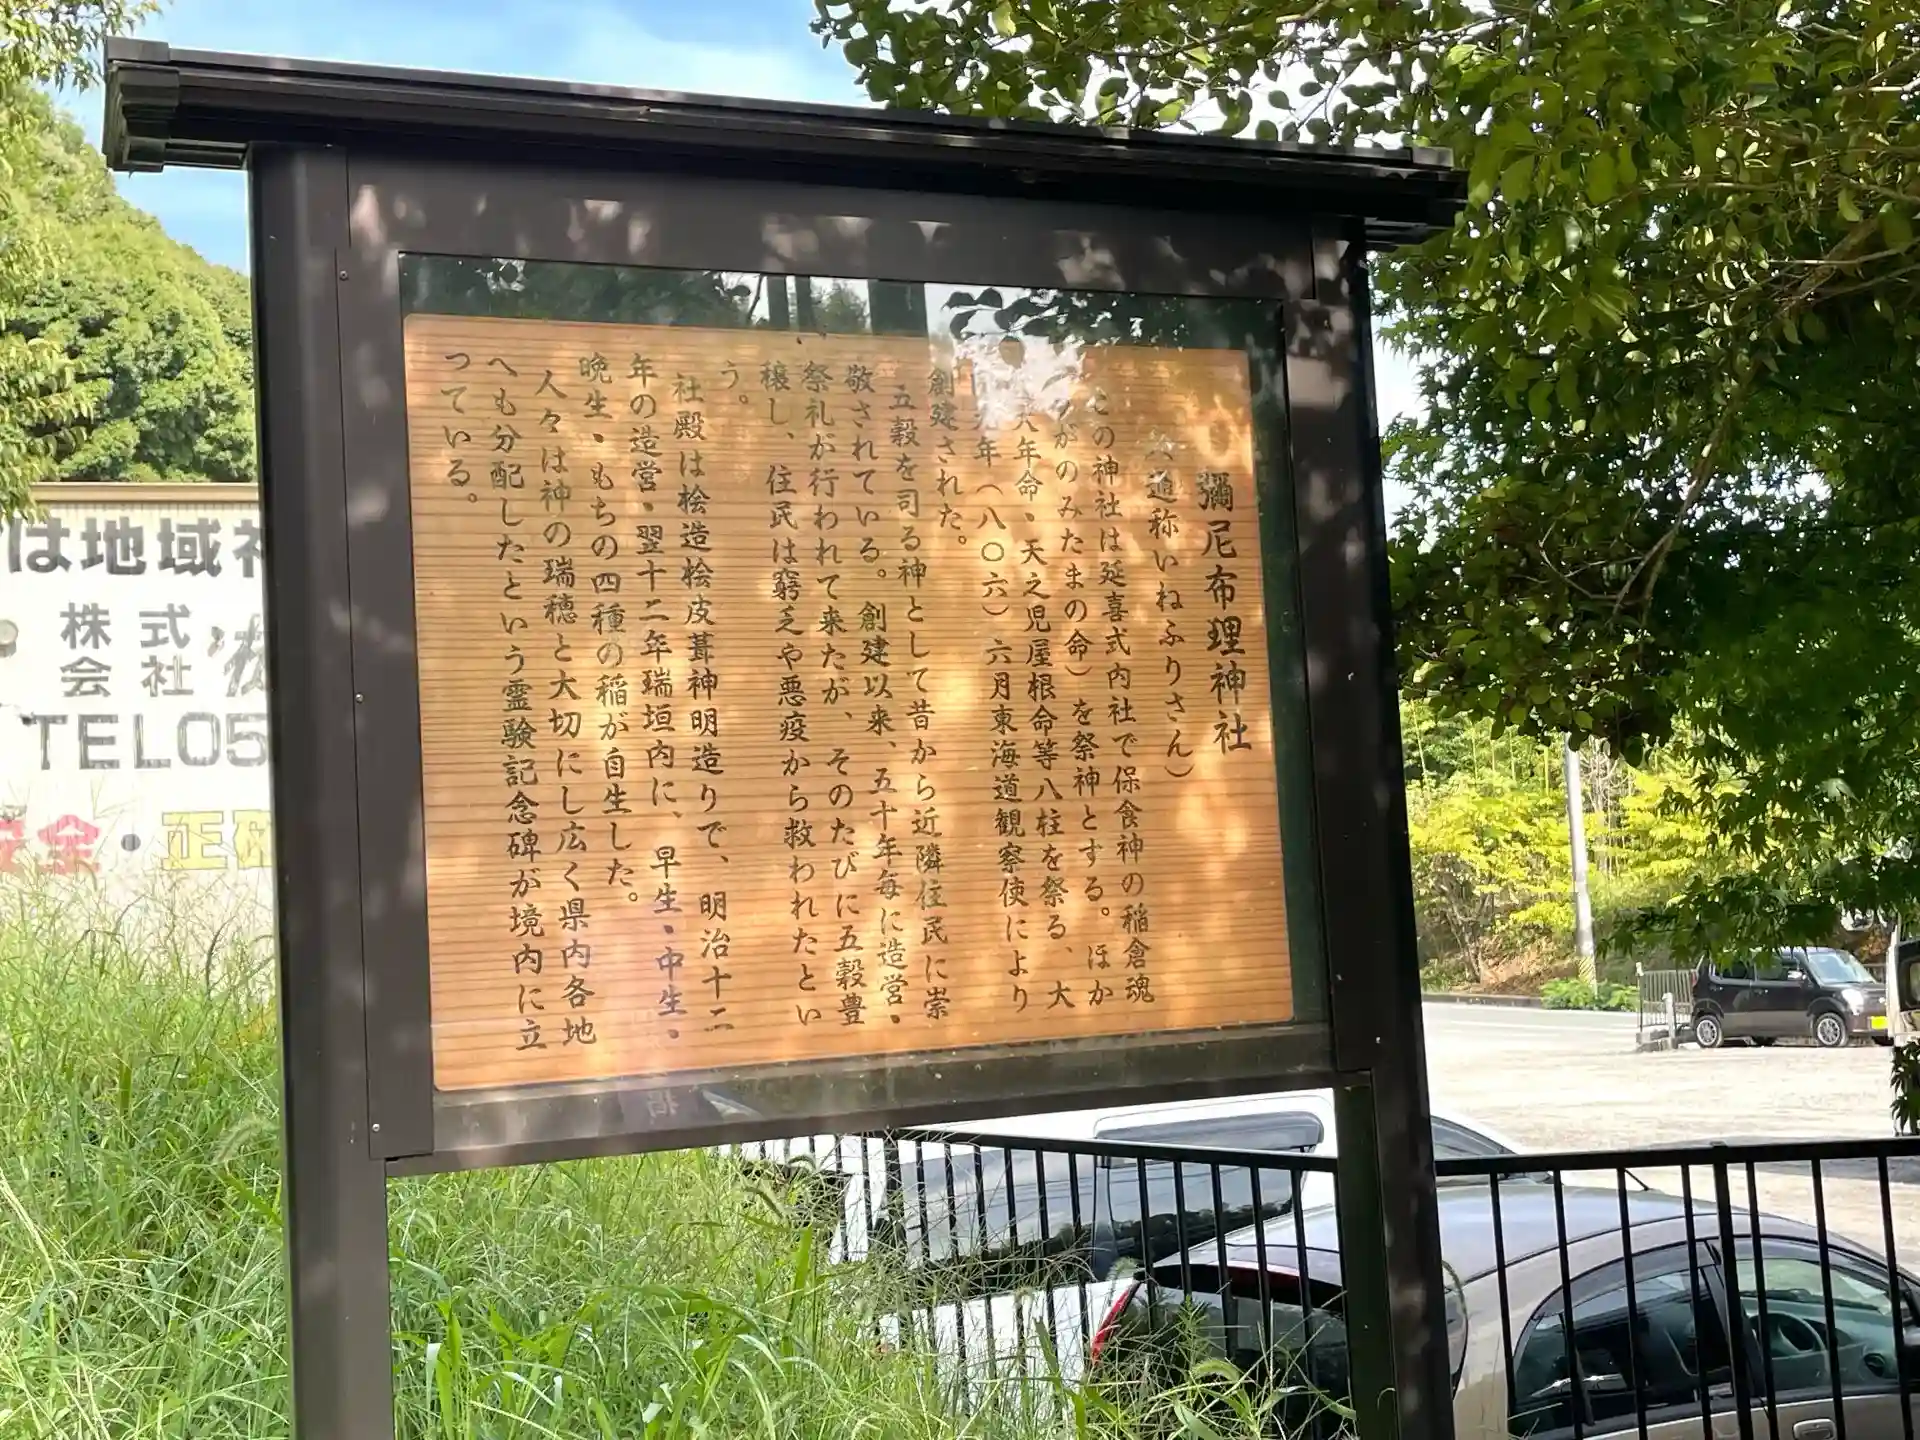 彌尼布理神社
通称いねふりさん）
この神社は延喜式内社で保食神の稲倉魂
がのみたまの命）を祭神とする。ほか
八年命・天之児屋根命等八柱を祭る、大
元年（八〇六）六月東海道観察使により
創建された。
五穀を司る神として昔から近隣住民に崇
敬されている。創建以来、五十年毎に造営・
祭礼が行われて来たが、そのたびに五穀豊
穣し、住民は窮乏や悪疫から救われたとい
う。
社殿は桧造桧皮葺神明造りで、明治十二
年の造営・翌十二年瑞垣内に、早生・中生・
晩生・もちの四種の稲が自生した。
人々は神の瑞穂と大切にし広く県内各地
へも分配したという霊験記念碑が境内に立
っている。
は地域
株式
会社
TEL05
安全・正確